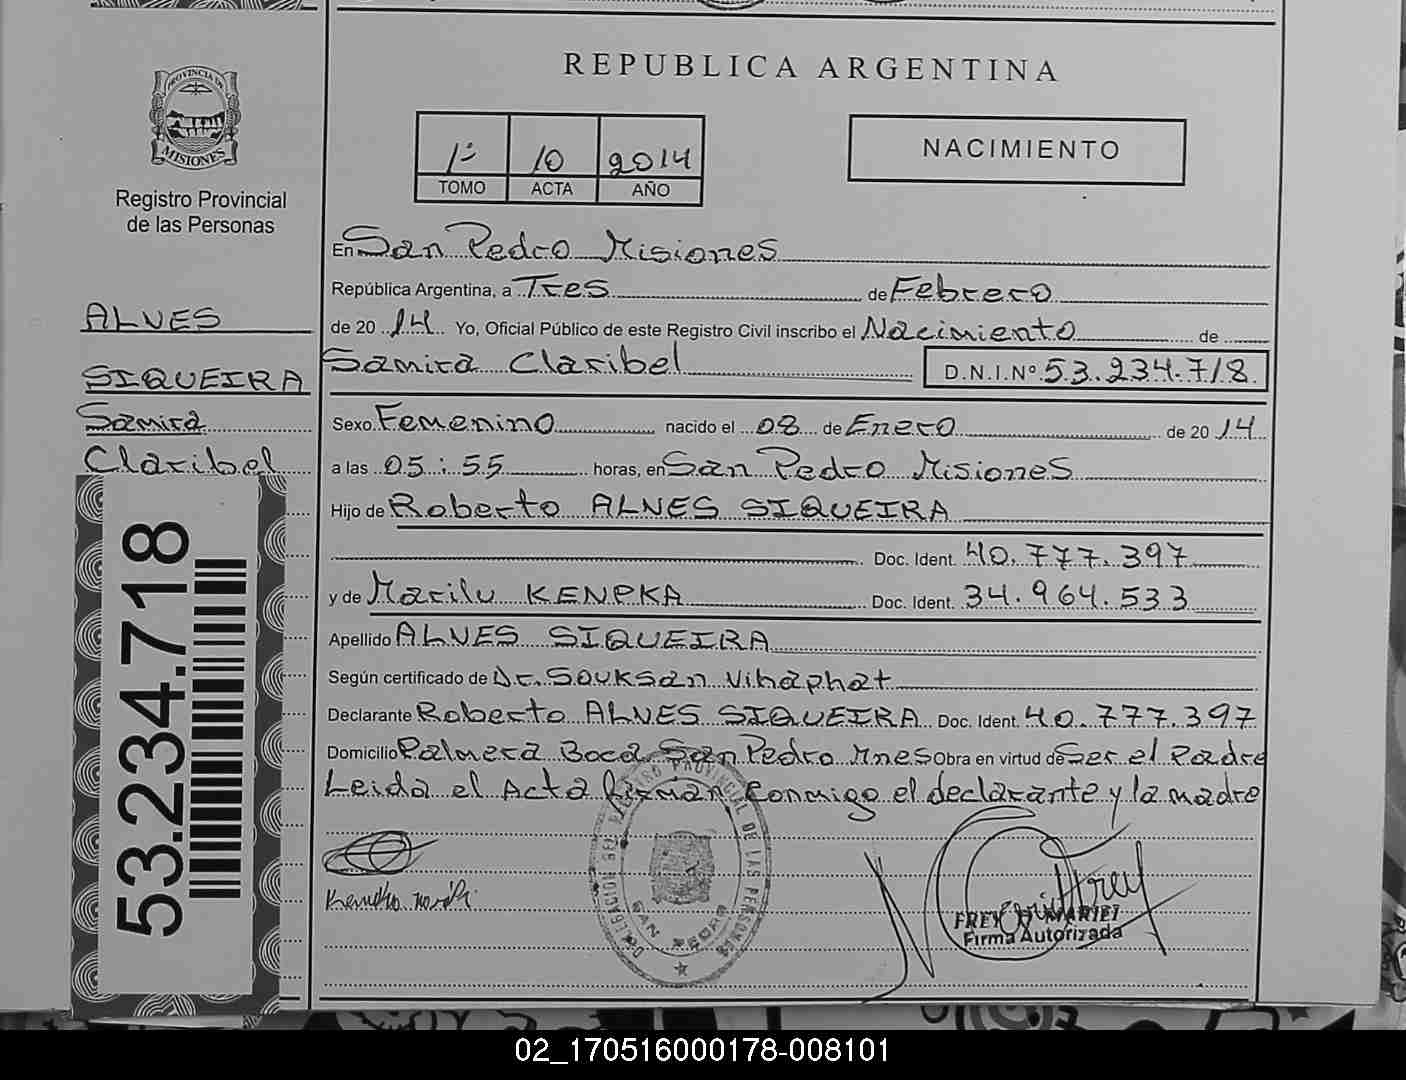 REPUBLICA ARGENTINA
PROVINCIA DE
MISIONES
Registro Provincial
de las Personas
1º 10 2014
TOMO ACTA AÑO
NACIMIENTO
ALVES
SIQUEIRA
Samira
Claribel
53.234.718
En San Pedro Misiones
República Argentina, a Tres de Febrero
de 2014 Yo, Oficial Público de este Registro Civil inscribo el Nacimiento de
Samira Claribel D.N.I.Nº 53.234.718
Sexo Femenino nacido el 08 de Enero de 2014
a las 05:55 horas, en San Pedro Misiones
Hijo de Roberto ALVES SIQUEIRA
Doc. Ident. 40.777.397
y de Marilu KENPKA Doc. Ident. 34.964.533
Apellido ALVES SIQUEIRA
Según certificado de Dr. Souksan Vihaphat
Declarante Roberto ALVES SIQUEIRA Doc. Ident. 40.777.397
Domicilio Palmera Boca San Pedro Mnes Obra en virtud de Ser el Padre
Leida el Acta firman conmigo el declarante y la madre
DELEGACION DEL REGISTRO PROVINCIAL DE LAS PERSONAS
SAN PEDRO
FREY
Firma Autorizada
02_170516000178-008101